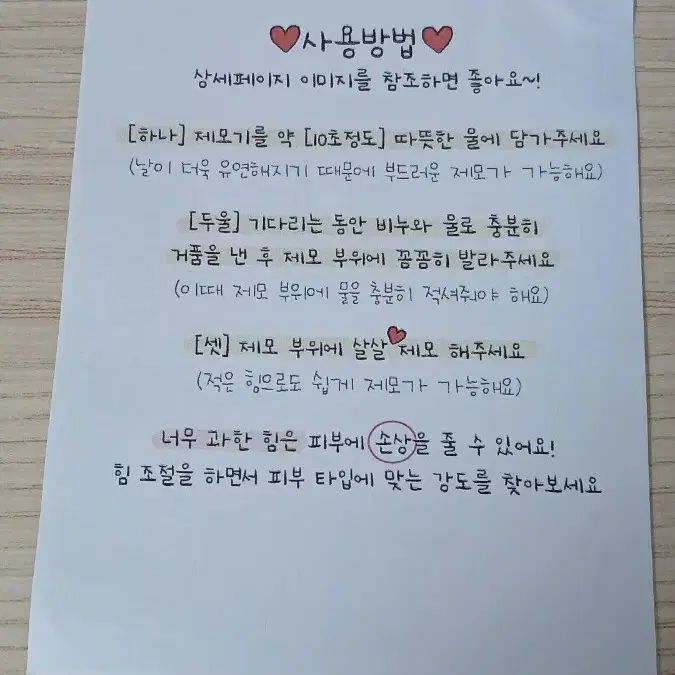 사용방법
상세페이지 이미지를 참조하면 좋아요~!
[하나] 제모기를 약 [10초정도] 따뜻한 물에 담가주세요
(날이 더욱 유연해지기 때문에 부드러운 제모가 가능해요)
[두울] 기다리는 동안 비누와 물로 충분히
거품을 낸 후 제모 부위에 꼼꼼히 발라주세요
(이때 제모 부위에 물을 충분히 적셔줘야 해요)
[셋] 제모 부위에 살살 제모 해주세요
(적은 힘으로도 쉽게 제모가 가능해요)
너무 과한 힘은 피부에 손상을 줄 수 있어요!
힘 조절을 하면서 피부 타입에 맞는 강도를 찾아보세요